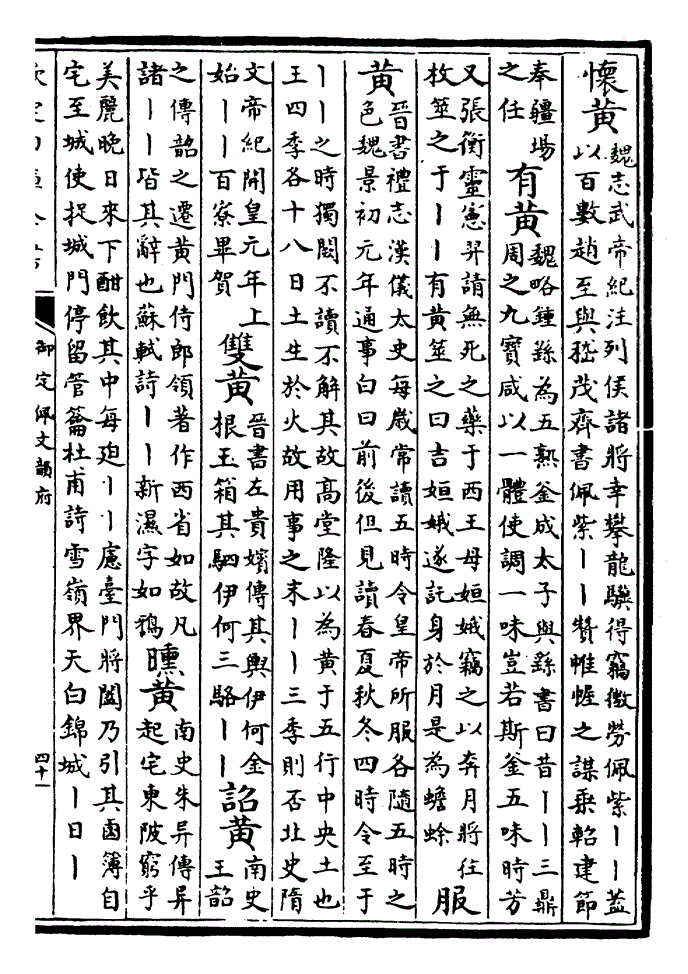 懷黃
魏志武帝紀注列侯諸將幸攀龍驥得竊微勞佩紫丨丨蓋
以百數趙至與嵇茂齊書佩紫丨丨贊帷幄之謀乘軺建節
奉疆埸
之任
有黃
魏略鍾繇為五熟釜成太子與繇書曰昔丨丨三鼎
周之九寶咸以一體使調一味豈若斯釜五味時芳
又張衡靈憲羿請無死之藥于西王母姮娥竊之以奔月將往
枚筮之于丨丨有黃筮之曰吉姮娥遂託身於月是為蟾蜍
服
黃
晉書禮志漢儀太史每歲常讀五時令皇帝所服各隨五時之
色魏景初元年通事白曰前後但見讀春夏秋冬四時令至于
丨丨之時獨闕不讀不解其故高堂隆以為黃于五行中央土也
王四季各十八日土生於火故用事之末丨丨三季則否北史隋
文帝紀開皇元年上
始丨丨百寮畢賀
雙黃
晉書左貴嬪傳其輿伊何金
根玉箱其駟伊何三駱丨丨
詔黃
南史
王韶
之傳韶之遷黃門侍郎領著作西省如故凡
諸丨丨皆其辭也蘇軾詩丨丨新濕字如鴉
曛黃
南史朱异傳异
起宅東陂窮乎
美麗晚日來下酣飲其中每廹丨丨慮臺門將闔乃引其鹵簿自
宅至城使捉城門停留管籥杜甫詩雪嶺界天白錦城丨日丨
欽定四庫全書
御定佩文韻府
四十一